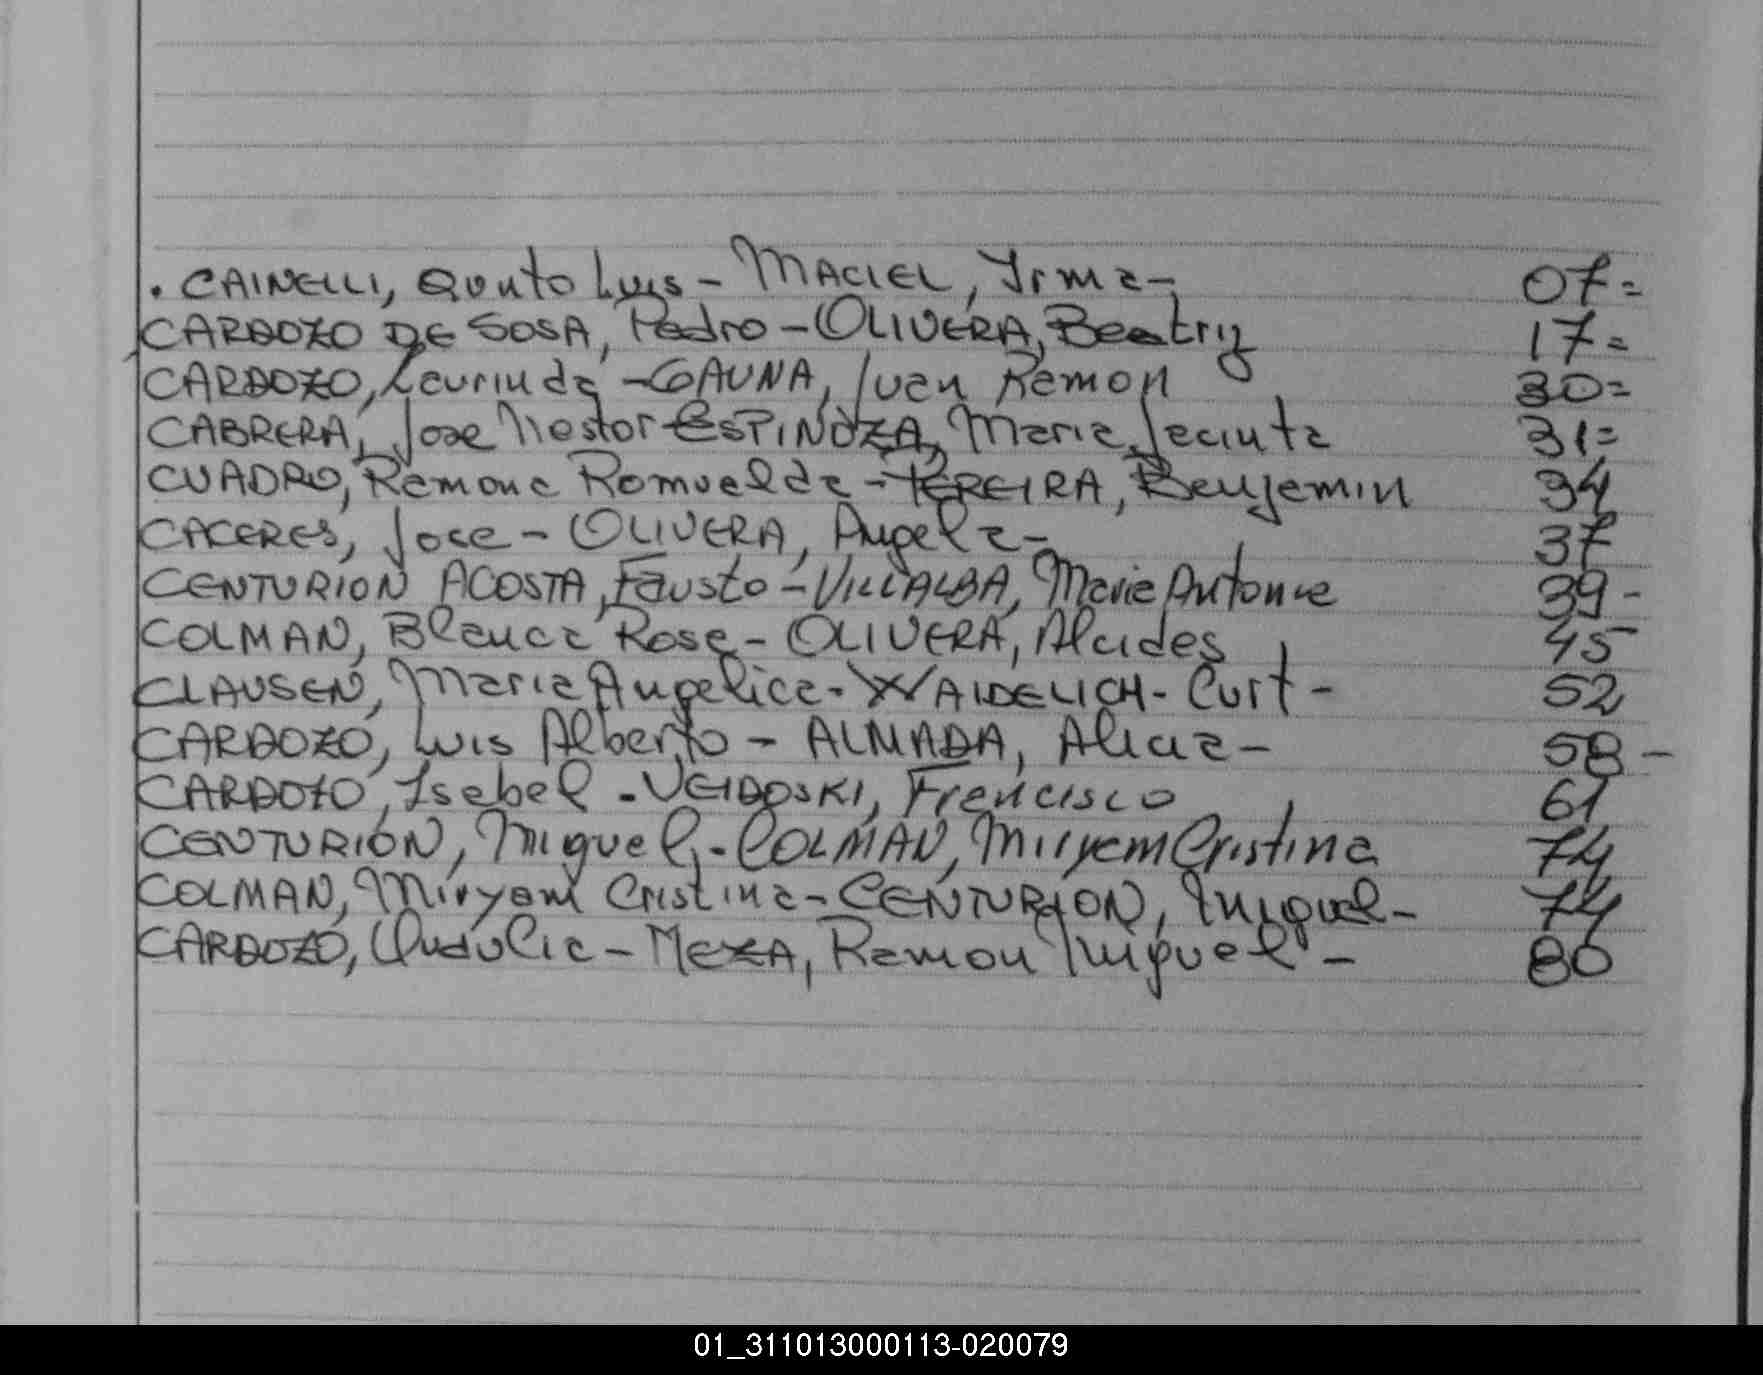 . CAINELLI, Quinto Luis - MACIEL, Irma - 07=
CARDOZO DE SOSA, Pedro - OLIVERA, Beatriz 17=
CARDOZO, Laurinda - GAUNA, Juan Ramon 30=
CABRERA, Jose Nestor ESPINOZA, Maria Jacinta 31=
CUADRO, Ramona Romualda - PEREIRA, Benjamin 34
CACERES, Jose - OLIVERA, Angela - 37
CENTURION ACOSTA, Fausto - VILLALBA, Maria Antonia 39 -
COLMAN, Blanca Rosa - OLIVERA, Alcides 45
CLAUSEN, Maria Angelica - WAIDELICH - Curt - 52
CARDOZO, Luis Alberto - ALMADA, Alicia - 58 -
CARDOZO, Isabel - VEIDOSKI, Francisco 61
CENTURION, Miguel - COLMAN, Miryam Cristina 74
COLMAN, Miryam Cristina - CENTURION, Miguel - 74
CARDOZO, - MEZA, Ramon Miguel - 80
01_311013000113-020079